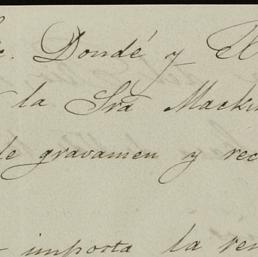 Dondé y
la Sra Mackin
de gravamen y rec
importa la ren